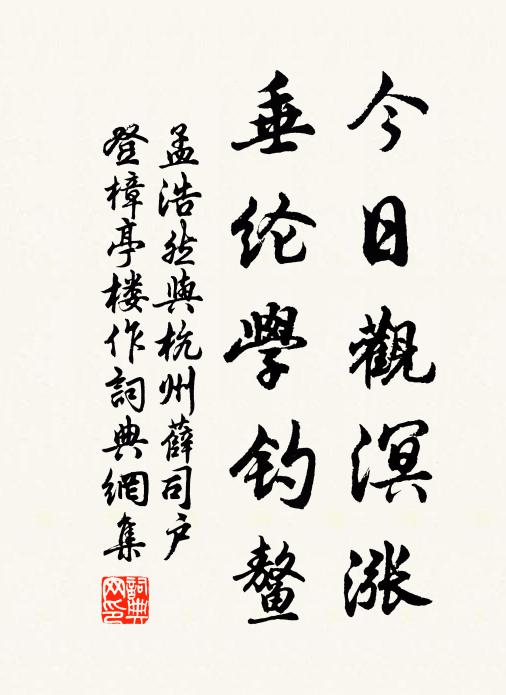 今日觀溟漲
垂纶學钓鰲
孟浩然與杭州薛司户
登樟亭楼作詞典網集
詞典网印